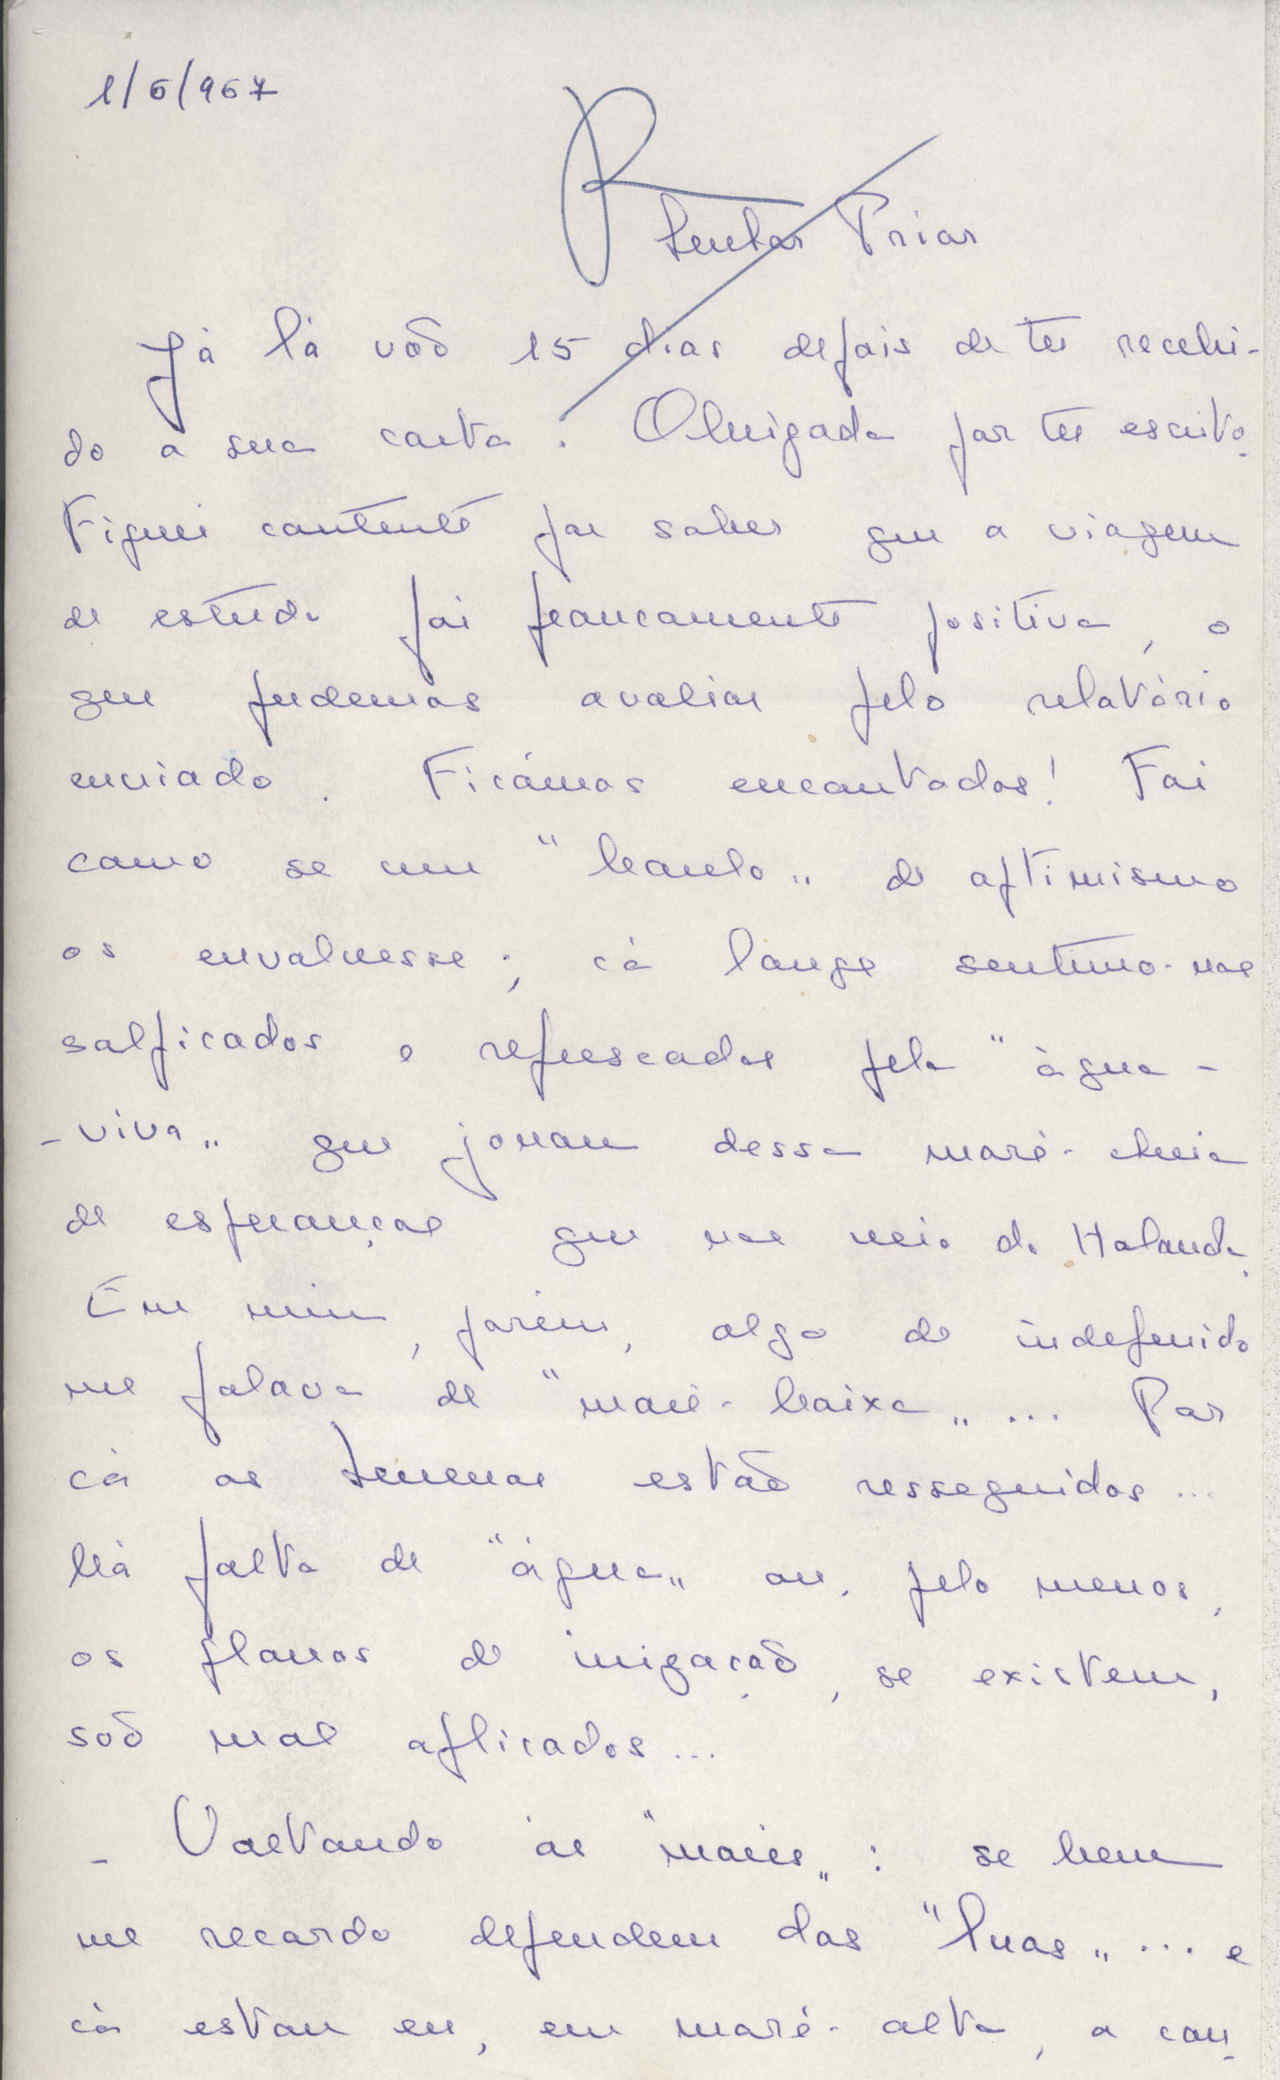 1/6/967
R
Senhor Prior
Já lá vão 15 dias depois de ter recebi-
do a sua carta. Obrigada por ter escrito.
Fiquei contente por saber que a viagem
de estudo foi francamente positiva, o
que pudemos avaliar pelo relatório
enviado. Ficámos encantados! Foi
como se um "banho" de optimismo
os envolvesse; cá longe sentimo-nos
salpicados e refrescados pela "água-
-viva" que jorrou dessa maré-cheia
de esperanças que nos veio da Holanda.
Em mim, porém, algo de indefenido
me falava de "maré-baixa"... Por
cá os terrenos estão ressequidos...
há falta de "água" ou, pelo menos,
os planos de irrigação, se existem,
são mal aplicados...
- Voltando às "marés": se bem
me recordo dependem das "luas"... e
cá estou eu, em maré-alta, a con-